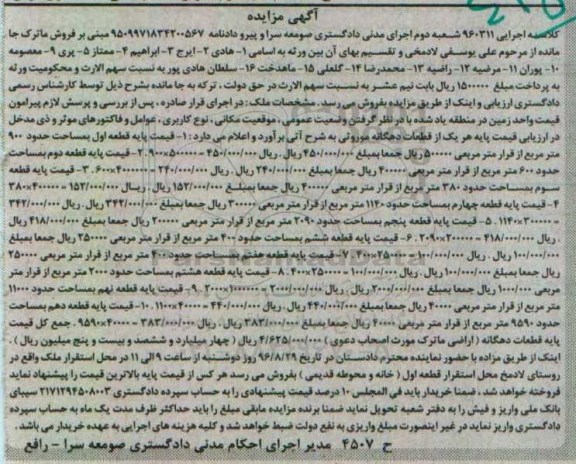 آگهی مزایده
کلاسه اجرایی ۹۶۰۳۱۱ شعبه دوم اجرای مدنی دادگستری صومعه سرا و پیرو دادنامه ۹۵۰۹۹۷۱۸۳۴۲۰۰۵۶۷ مبنی بر فروش ماترک جا
مانده از مرحوم علی یوسفی لادمخی و تقسیم بهای آن بین ورثه به اسامی ۱- هادی ۲- ایرج ۳- ابراهیم ۴- ممتاز ۵- پری ۹- معصومه
۱۰- پوران ۱۱- مرضیه ۱۲- راضیه ۱۳- محمدرضا ۱۴- گلعلی ۱۵- ماهدخت ۱۶- سلطان هادی پور به نسبت سهم الارث و محکومیت ورثه
به پرداخت مبلغ ۱۵۰۰۰۰۰ ریال بابت نیم عشر به نسبت سهم الارث در حق دولت . ترکه به جا مانده بشرح ذیل توسط کارشناس رسمی
دادگستری ارزیابی و اینک از طریق مزایده بفروش می رسد. مشخصات ملک : در اجرای قرار صادره ، پس از بررسی و پرسش لازم پیرامون
قیمت واحد زمین در منطقه یاد شده با در نظر گرفتن وضعیت عمومی ، موقعیت مکانی ، نوع کاربری ، عوامل و فاکتورهای موثر و ذی مدخل
در ارزیابی قیمت پایه هر یک از قطعات دهگانه موروثی به شرح آتی برآورد و اعلام می دارد : ۱- قیمت پایه قطعه اول بمساحت حدود ۹۰۰
متر مربع از قرار متر مربعی ۵۰۰۰۰۰ ریال جمعا بمبلغ ۴۵۰/۰۰۰/۰۰۰ ریال . ریال ۴۵۰/۰۰۰/۰۰۰ = ۵۰۰۰۰۰×۹۰۰ .۲- قیمت پایه قطعه دوم بمساحت
حدود ۶۰۰ متر مربع از قرار متر مربعی ۴۰۰۰۰۰ ریال جمعا بمبلغ ۲۴۰/۰۰۰/۰۰۰ ریال . ریال ۲۴۰/۰۰۰/۰۰۰ = ۴۰۰۰۰۰×۶۰۰ .۳- قیمت پایه قطعه
سوم بمساحت حدود ۳۸۰ متر مربع از قرار متر مربعی ۴۰۰۰۰۰ ریال جمعا بمبلغ ۱۵۲/۰۰۰/۰۰۰ ریال . ریال ۱۵۲/۰۰۰/۰۰۰ = ۴۰۰۰۰۰×۳۸۰
۴- قیمت پایه قطعه چهارم بمساحت حدود ۱۱۴۰ متر مربع از قرار متر مربعی ۳۰۰۰۰۰ ریال جمعا بمبلغ ۳۴۲/۰۰۰/۰۰۰ ریال . ریال ۳۴۲/۰۰۰/۰۰۰
= ۳۰۰۰۰۰×۱۱۴۰ .۵- قیمت پایه قطعه پنجم بمساحت حدود ۲۰۹۰ متر مربع از قرار متر مربعی ۲۰۰۰۰۰ ریال جمعا بمبلغ ۴۱۸/۰۰۰/۰۰۰ ریال
. ریال ۴۱۸/۰۰۰/۰۰۰ = ۲۰۰۰۰۰×۲۰۹۰ .۶- قیمت پایه قطعه ششم بمساحت حدود ۴۰۰ متر مربع از قرار متر مربعی ۲۵۰۰۰۰ ریال جمعا بمبلغ
۱۰۰/۰۰۰/۰۰۰ ریال . ریال ۱۰۰/۰۰۰/۰۰۰ = ۲۵۰۰۰۰×۴۰۰ .۷- قیمت پایه قطعه هفتم بمساحت حدود ۴۰۰ متر مربع از قرار متر مربعی ۲۵۰۰۰۰
ریال جمعا بمبلغ ۱۰۰/۰۰۰/۰۰۰ ریال . ریال ۱۰۰/۰۰۰/۰۰۰ = ۲۵۰۰۰۰×۴۰۰ .۸- قیمت پایه قطعه هشتم بمساحت حدود ۲۰۰۰ متر مربع از قرار متر
مربعی ریال جمعا بمبلغ ریال . ریال .۹- قیمت پایه قطعه نهم بمساحت حدود ۱۱۰۰۰
متر مربع از قرار متر مربعی ۴۰۰۰۰ ریال جمعا بمبلغ ۴۴۰/۰۰۰/۰۰۰ ریال . ریال ۴۴۰/۰۰۰/۰۰۰ = .۱۰- قیمت پایه قطعه دهم بمساحت
حدود ۹۵۹۰ متر مربع از قرار متر مربعی ۴۰۰۰۰ ریال جمعا بمبلغ ۳۸۳/۰۰۰/۰۰۰ ریال . ریال ۳۸۳/۰۰۰/۰۰۰ = ۴۰۰۰۰×۹۵۹۰ . جمع کل قیمت
پایه قطعات دهگانه ( اراضی ماترک مورث اصحاب دعوی ) ۴/۶۲۵/۰۰۰/۰۰۰ ریال ( چهار میلیارد و ششصد و بیست و پنج میلیون ریال ) .
اینک از طریق مزاده با حضور نماینده محترم دادستان در تاریخ ۹۶/۸/۲۹ روز دوشنبه از ساعت ۹ الی ۱۱ در محل استقرار ملک واقع در
روستای لادمخ محل استقرار قطعه اول ( خانه و محوطه قدیمی ) بفروش می رسد هر کس از قیمت پایه بالاترین قیمت را پیشنهاد نماید
فروخته خواهد شد ، ضمنا خریدار باید فی المجلس ۱۰ درصد قیمت پیشنهادی را به حساب سپرده دادگستری ۲۱۷۱۲۹۴۵۰۸۰۰۳ سیبای
بانک ملی واریز و فیش را به دفتر شعبه تحویل نماید ضمنا برنده مزایده مابقی مبلغ را باید حداکثر ظرف مدت یک ماه به حساب سپرده
دادگستری واریز نماید در غیر اینصورت مبلغ واریزی به نفع دولت ضبط خواهد شد و کلیه هزینه های اجرایی به عهده خریدار می باشد .
ح ۴۵۰۷ مدیر اجرای احکام مدنی دادگستری صومعه سرا - رافع